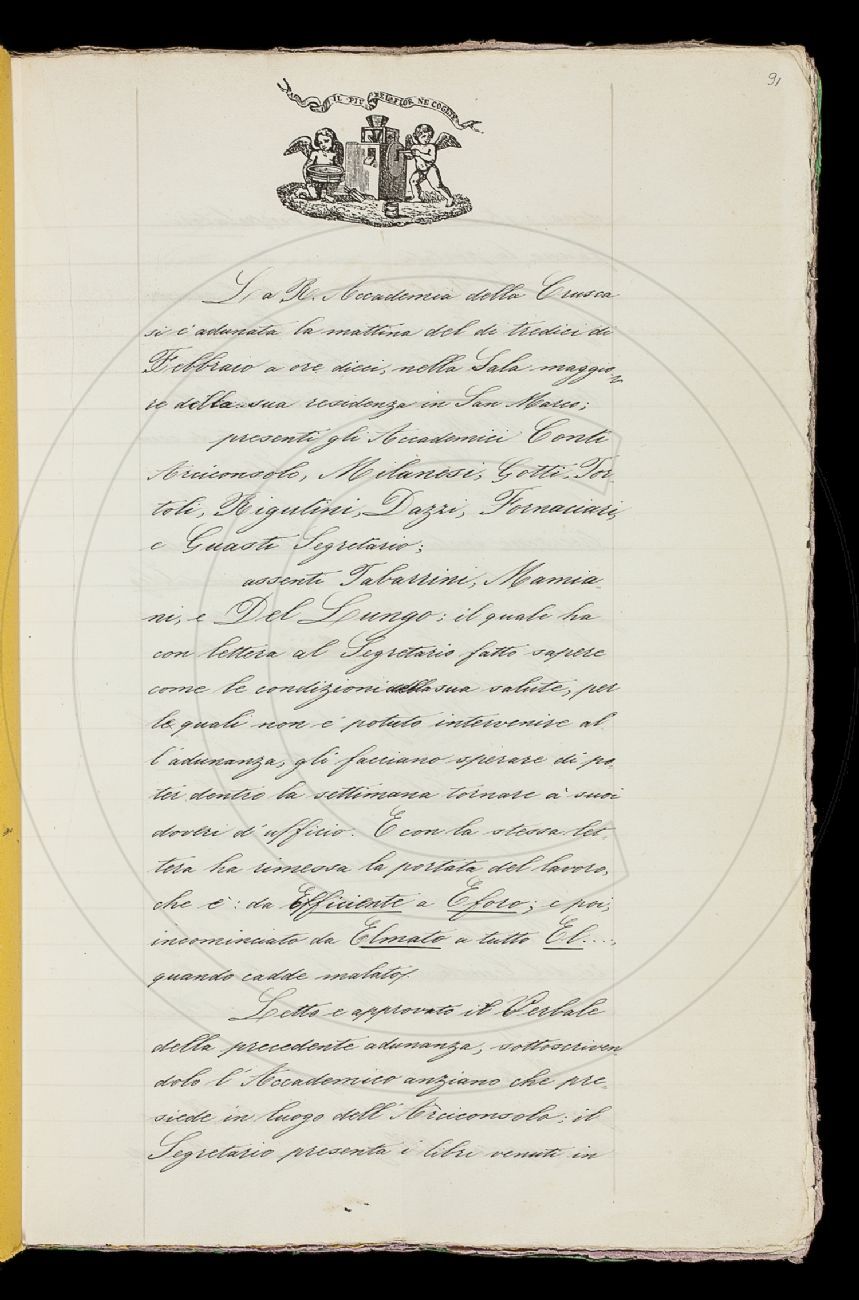 91
IL PIÙ BEL FIOR NE COGLIE
La R. Accademia della Crusca
si è adunata la mattina del dì tredici di
Febbraio a ore dieci, nella Sala maggio
re della sua residenza in San Marco;
presenti gli Accademici Conti
Arciconsolo, Milanesi, Gotti, Tor
toli, Rigutini, Dazzi, Fornaciari,
e Guasti Segretario;
assenti Tabarrini, Mamia
ni, e Del Lungo; il quale ha
con lettera al Segretario fatto sapere
come le condizioni della sua salute, per
le quali non è potuto intervenire al
l'adunanza, gli facciano sperare di po
ter dentro la settimana tornare a' suoi
doveri d'ufficio. E con la stessa let
tera ha rimessa la portata del lavoro,
che è: da Efficiente a Eforo; e poi,
incominciato da Elmato a tutto El....,
quando cadde malato.
Letto e approvato il Verbale
della precedente adunanza, sottoscriven
dolo l'Accademico anziano che pre
siede in luogo dell'Arciconsolo; il
Segretario presenta i libri venuti in